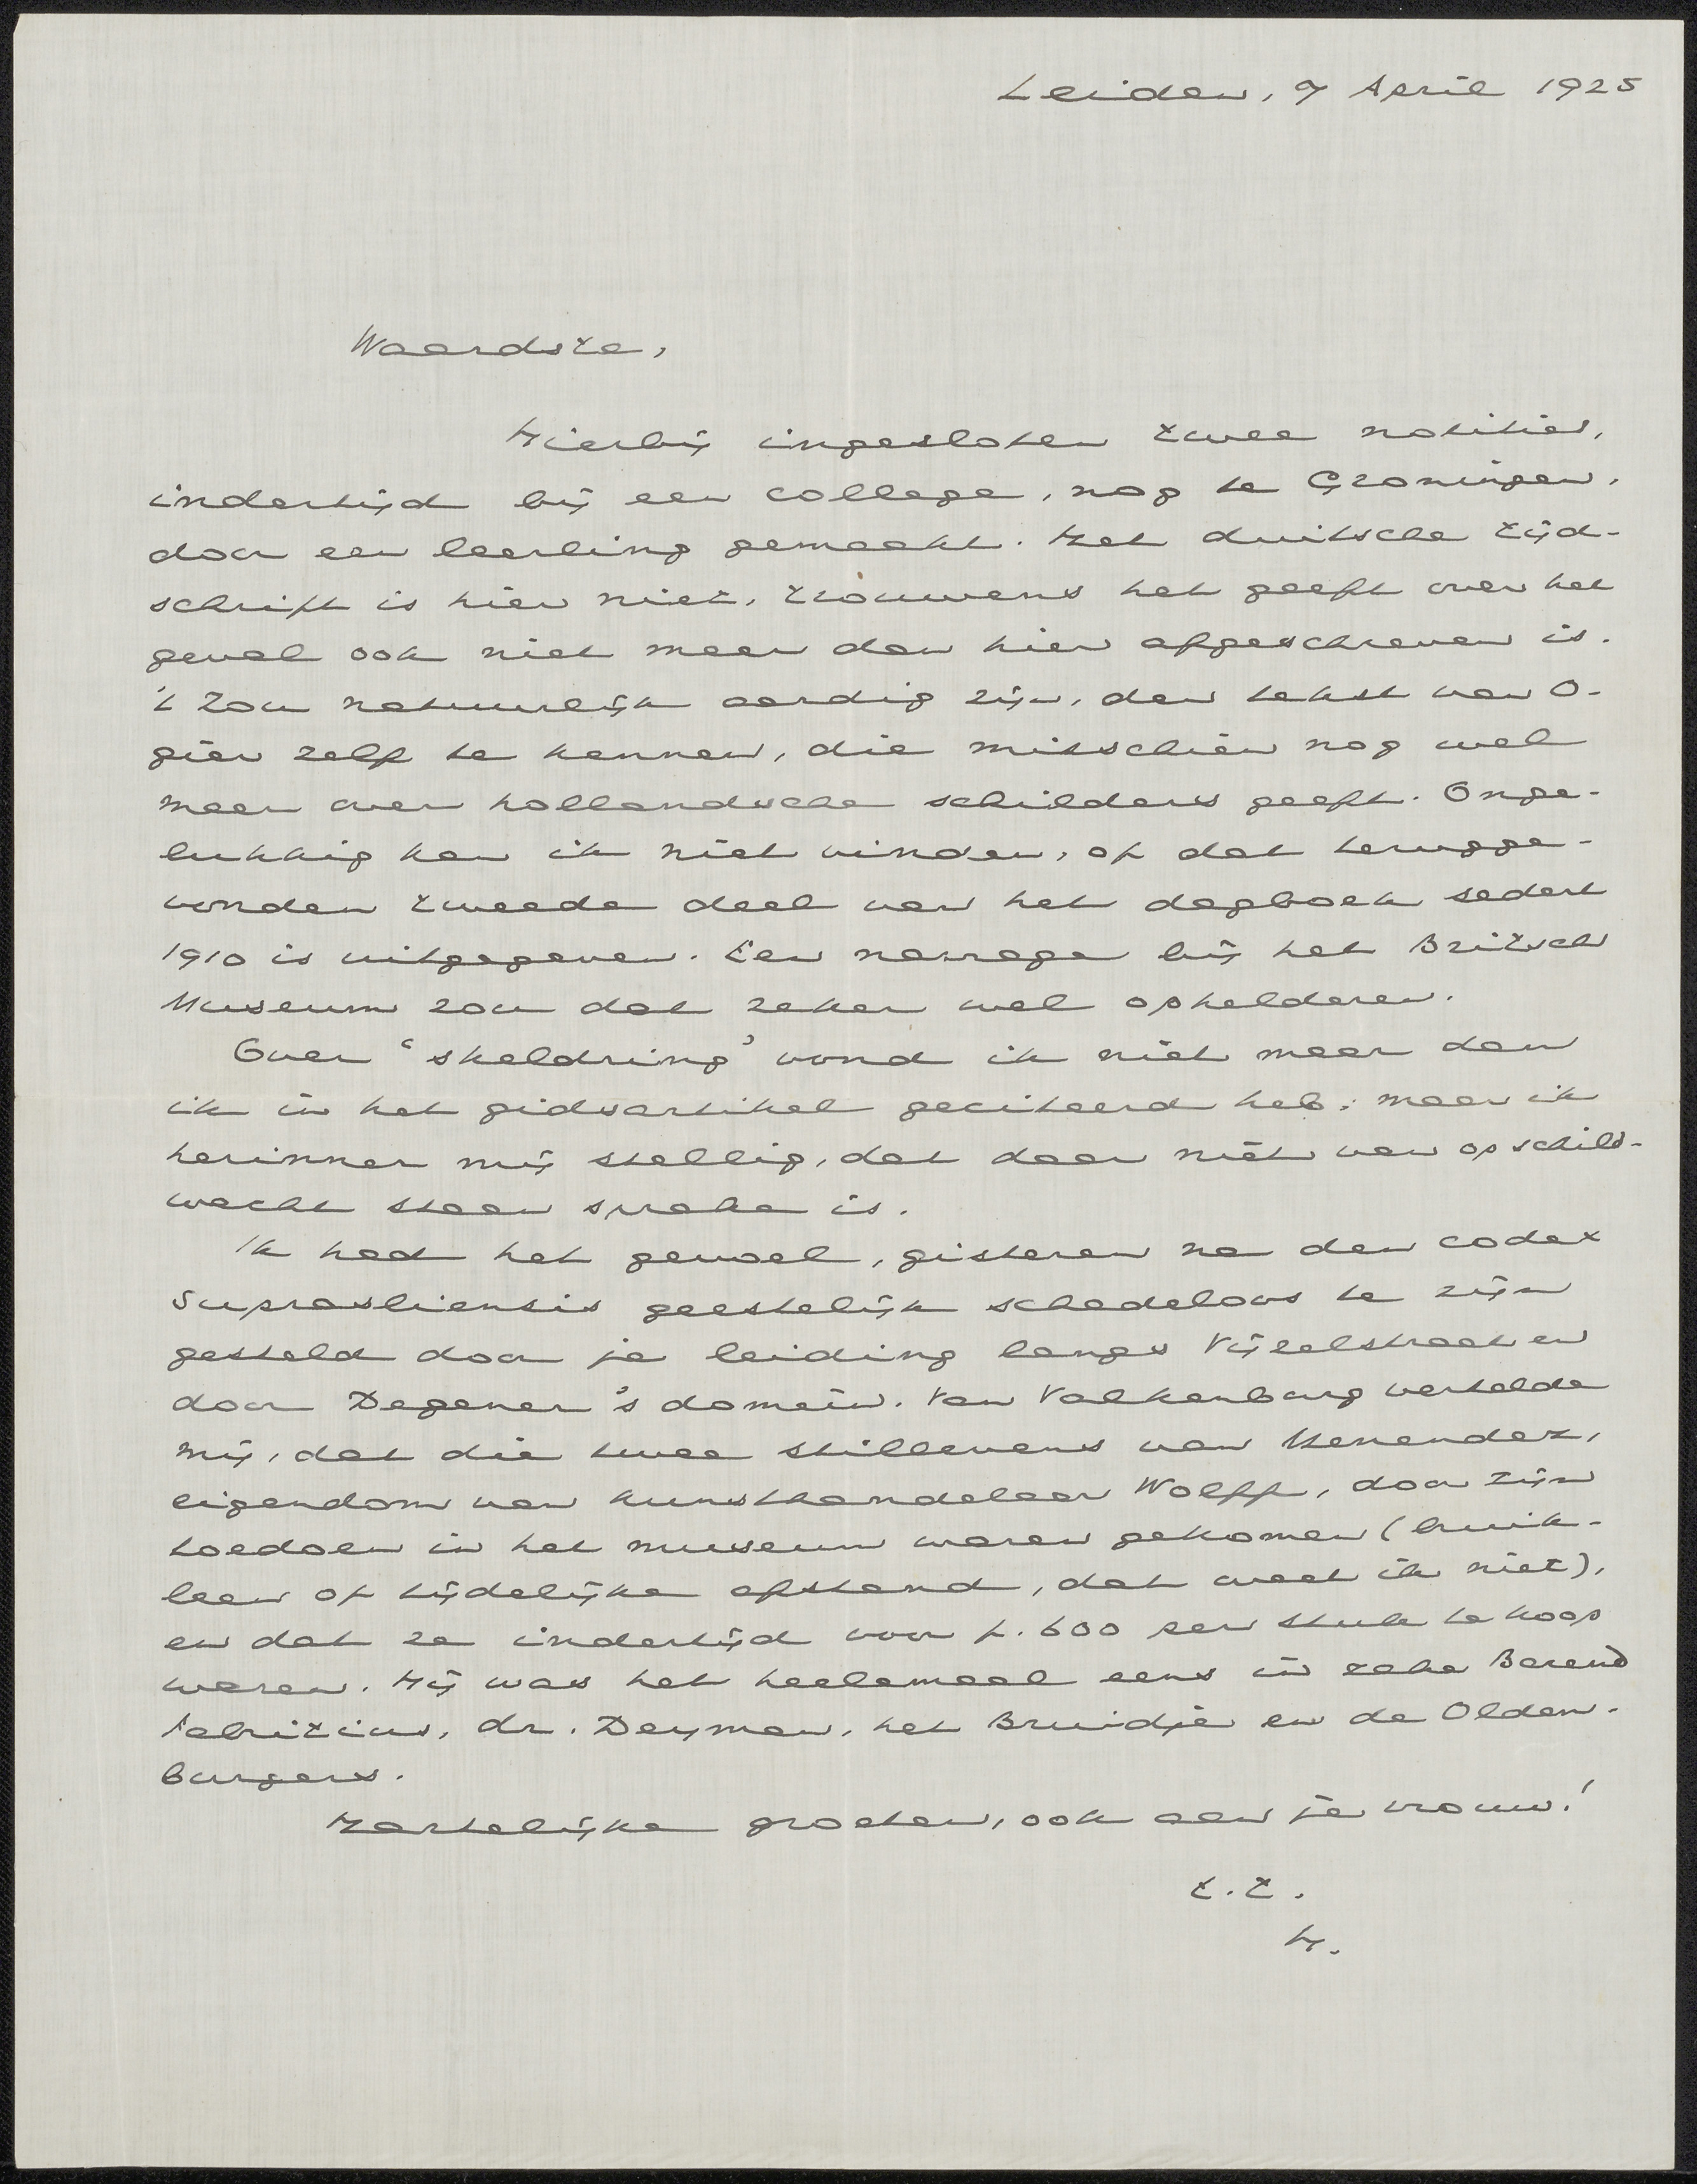 Leiden, 9 April 1925
Waardste,
Hierbij ingesloten twee notities,
indertijd bij een college, nog te Groningen,
door een leerling gemaakt. Het duitsche tijd-
schrift is hier niet, trouwens het geeft over het
geval ook niet meer dan hier afgeschreven is.
't Zou natuurlijk aardig zijn, den tekst van O-
gier zelf te kennen, die misschien nog wel
meer over hollandsche schilders geeft. Onge-
lukkig kan ik niet vinden, of dat terugge-
vonden tweede deel van het dagboek sedert
1910 is uitgegeven. Een navrage bij het Britsch
Museum zou dat zeker wel ophelderen.
Over 'skeldring' vond ik niet meer dan
ik in het gidsartikel geciteerd heb; maar ik
herinner mij stellig, dat daar niet van op schild-
wacht staan sprake is.
Ik had het gevoel, gisteren na den codex
Suprasliensis geestelijk schadeloos te zijn
gesteld door je leiding langs Vijzelstraat en
door Degener's domein. Van Valkenburg vertelde
mij, dat die twee stillevens van Menendez,
eigendom van kunsthandelaar Wolff, door zijn
toedoen in het museum waren gekomen (bruik-
leen of tijdelijke afstand, dat weet ik niet),
en dat ze indertijd voor f. 600 per stuk te koop
waren. Hij was het heelemaal eens in zake Barend
Fabritius, dr. Deyman, het Bruidje en de Olden-
burgers.
Hartelijke groeten, ook aan je vrouw!
t.t.
H.